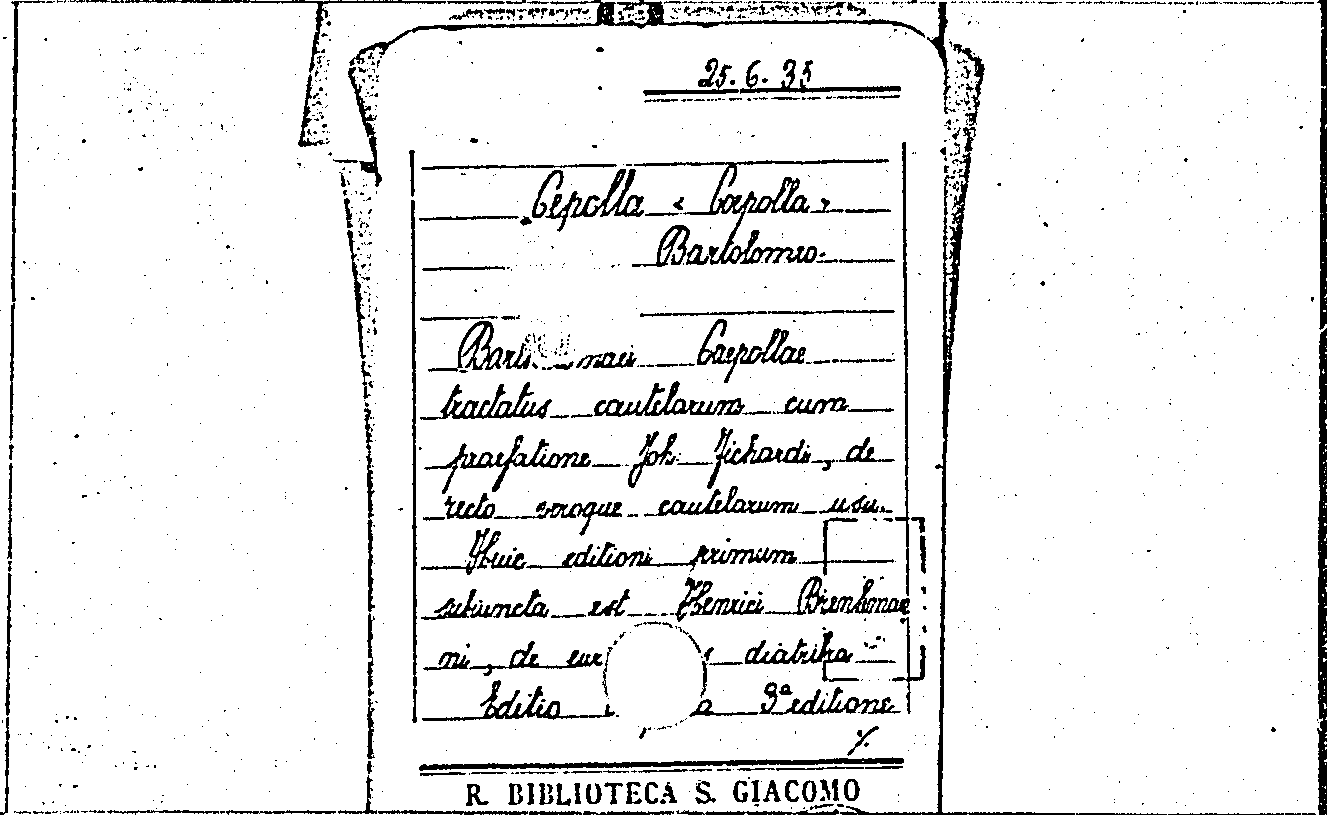 25. 6. 35
Cepolla < Caepolla >
Bartolomeo.
Caepollae
tractatus cautelarum cum
praefatione Joh. Fichardi, de
recto veroque cautelarum usu.
Huic editioni primum
subiuncta est Henrici Brenkman
ni, de diatriba
Editio 9ª editione
%
R. BIBLIOTECA S. GIACOMO